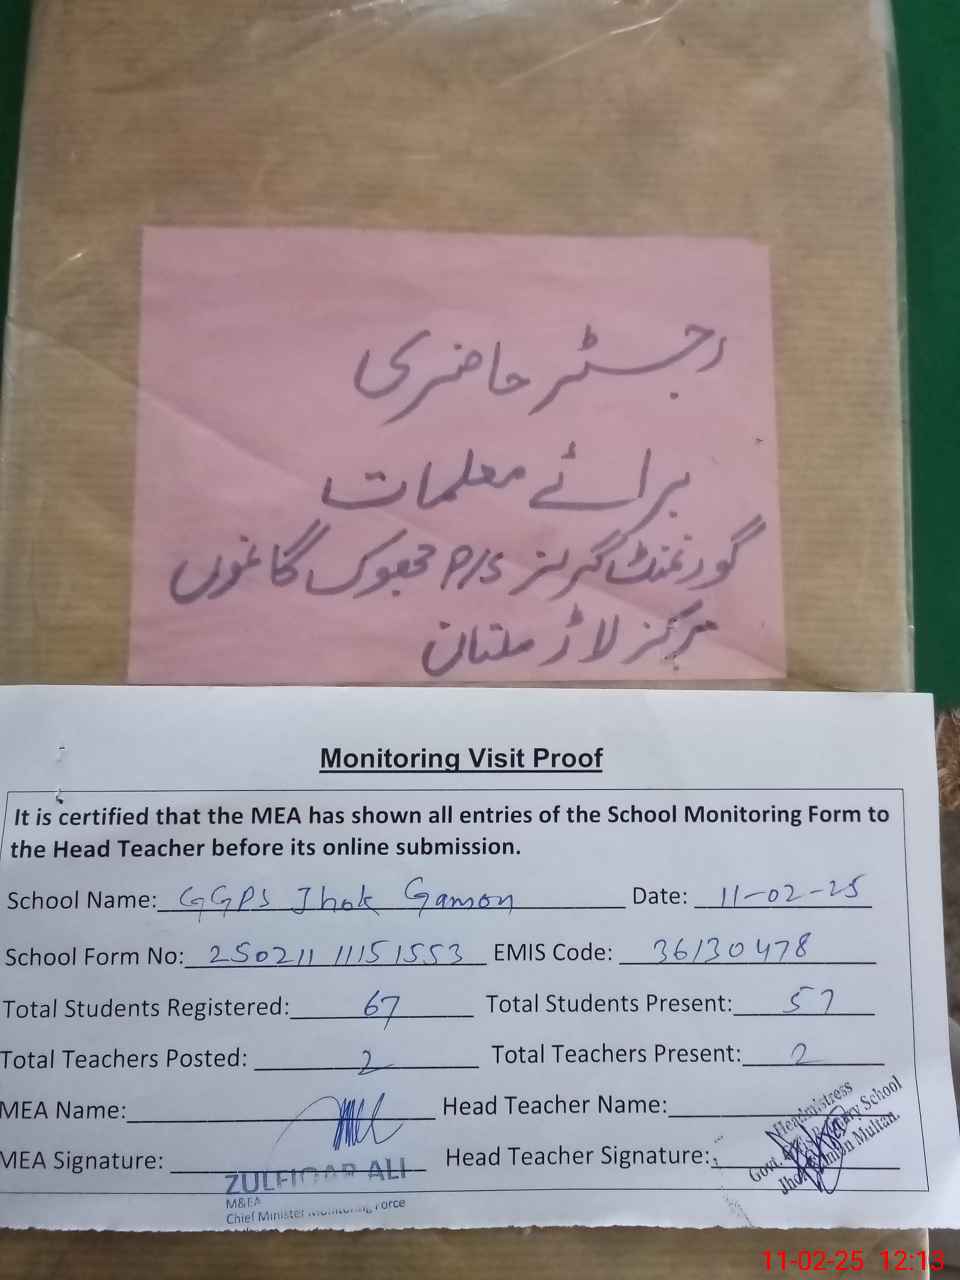 رجسٹر حاضری
برائے معلمات
گورنمنٹ گرلز P/S جھوک گاموں
مرکز لاڑ ملتان
Monitoring Visit Proof
It is certified that the MEA has shown all entries of the School Monitoring Form to
the Head Teacher before its online submission.
School Name: GGPS Jhok Gamon Date: 11-02-25
School Form No: 250211 11151553 EMIS Code: 36130478
Total Students Registered: 67 Total Students Present: 57
Total Teachers Posted: 2 Total Teachers Present: 2
MEA Name: Head Teacher Name:
MEA Signature: Head Teacher Signature:
ZULFIQAR ALI
M&EA
Chief Minister Monitoring Force
Headmistress
Govt. Girls Primary School
Jhok Gamon Multan.
11-02-25 12:13